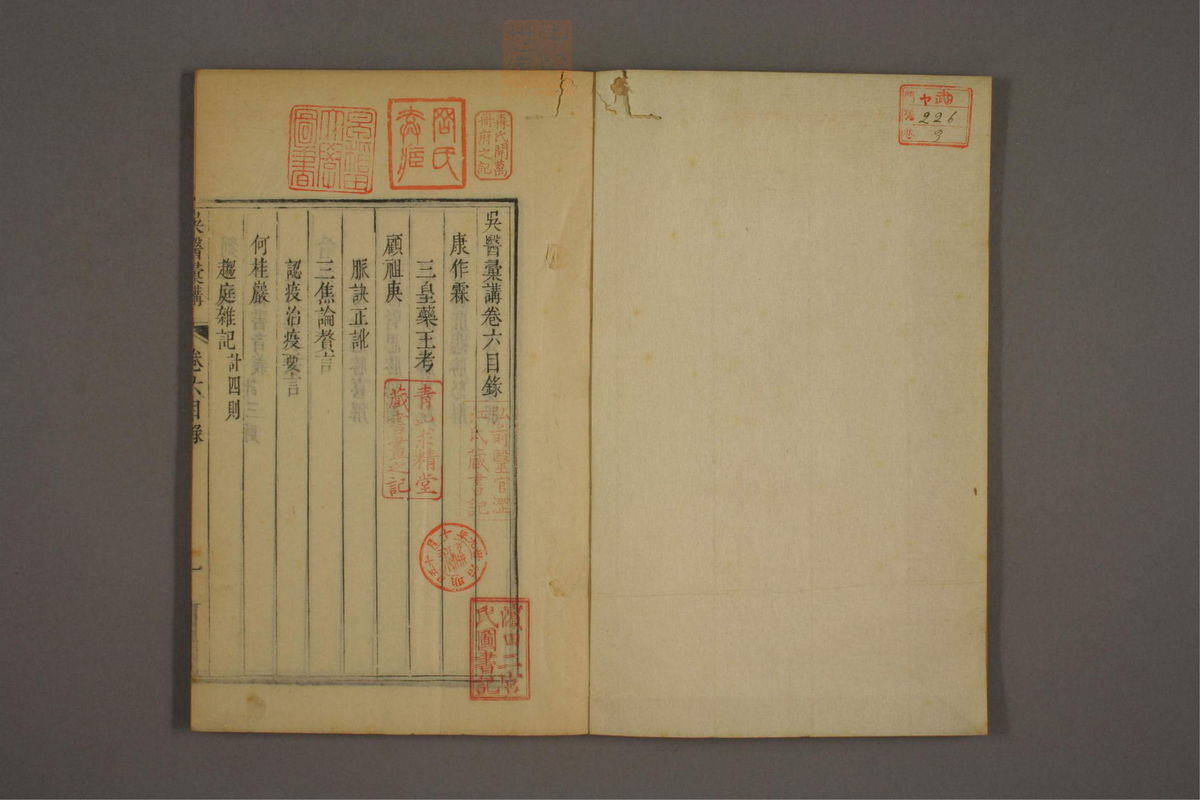 吳醫彙講卷六目錄
康作霖
三皇藥王考
顧祖庚
脈訣正訛
三焦論贅言
認疫治疫要言
何桂巖
趨庭雜記計四則
吳醫彙講
卷六目錄
一
弘前醫官澀
江氏藏書記
青山求精堂
藏書畫之記
氏圖書記
圖書
門
號
226
9